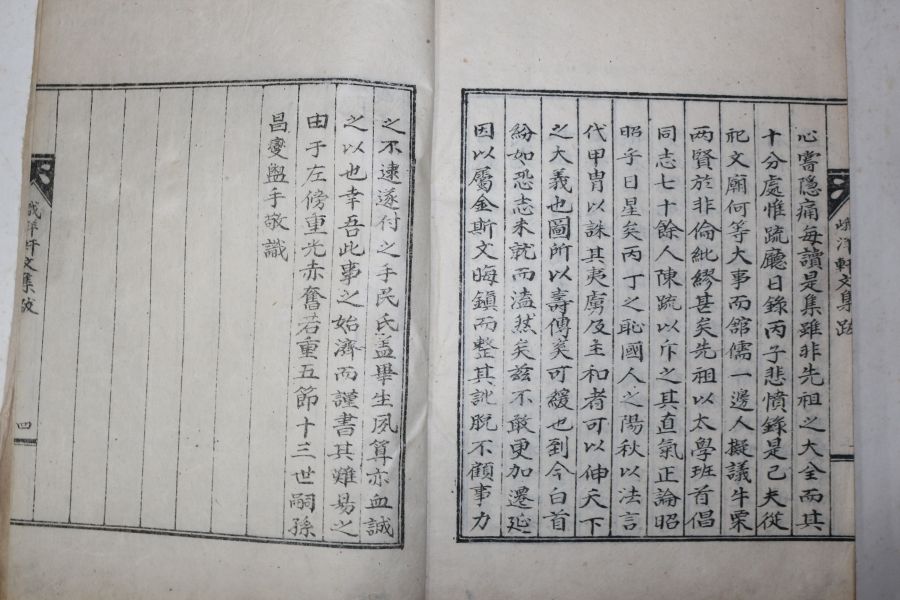 心嘗隱痛每讀是集雖非先祖之大全而其
十分處惟疏廳日錄丙子悲憤錄是已夫從
祀文廟何等大事而舘儒一邊人擬議牛栗
兩賢於非倫紕繆甚矣先祖以太學班首倡
同志七十餘人陳疏以斥之其直氣正論昭
昭乎日星矣丙丁之恥國人之陽秋以法言
代甲胄以誅其夷虜及主和者可以伸天下
之大義也圖所以壽傳奚可緩也到今白首
紛如恐志未就而溘然矣玆不敢更加遷延
因以屬金斯文晦鎮而整其訛脫不顧事力
軒文集跋
之不逮遂付之手民氏盖畢生夙算亦血誠
之以也幸吾此事之始濟而謹書其難易之
由于左傍重光赤奮若重五節十三世嗣孫
昌燮盥手敬識
軒文集跋
四